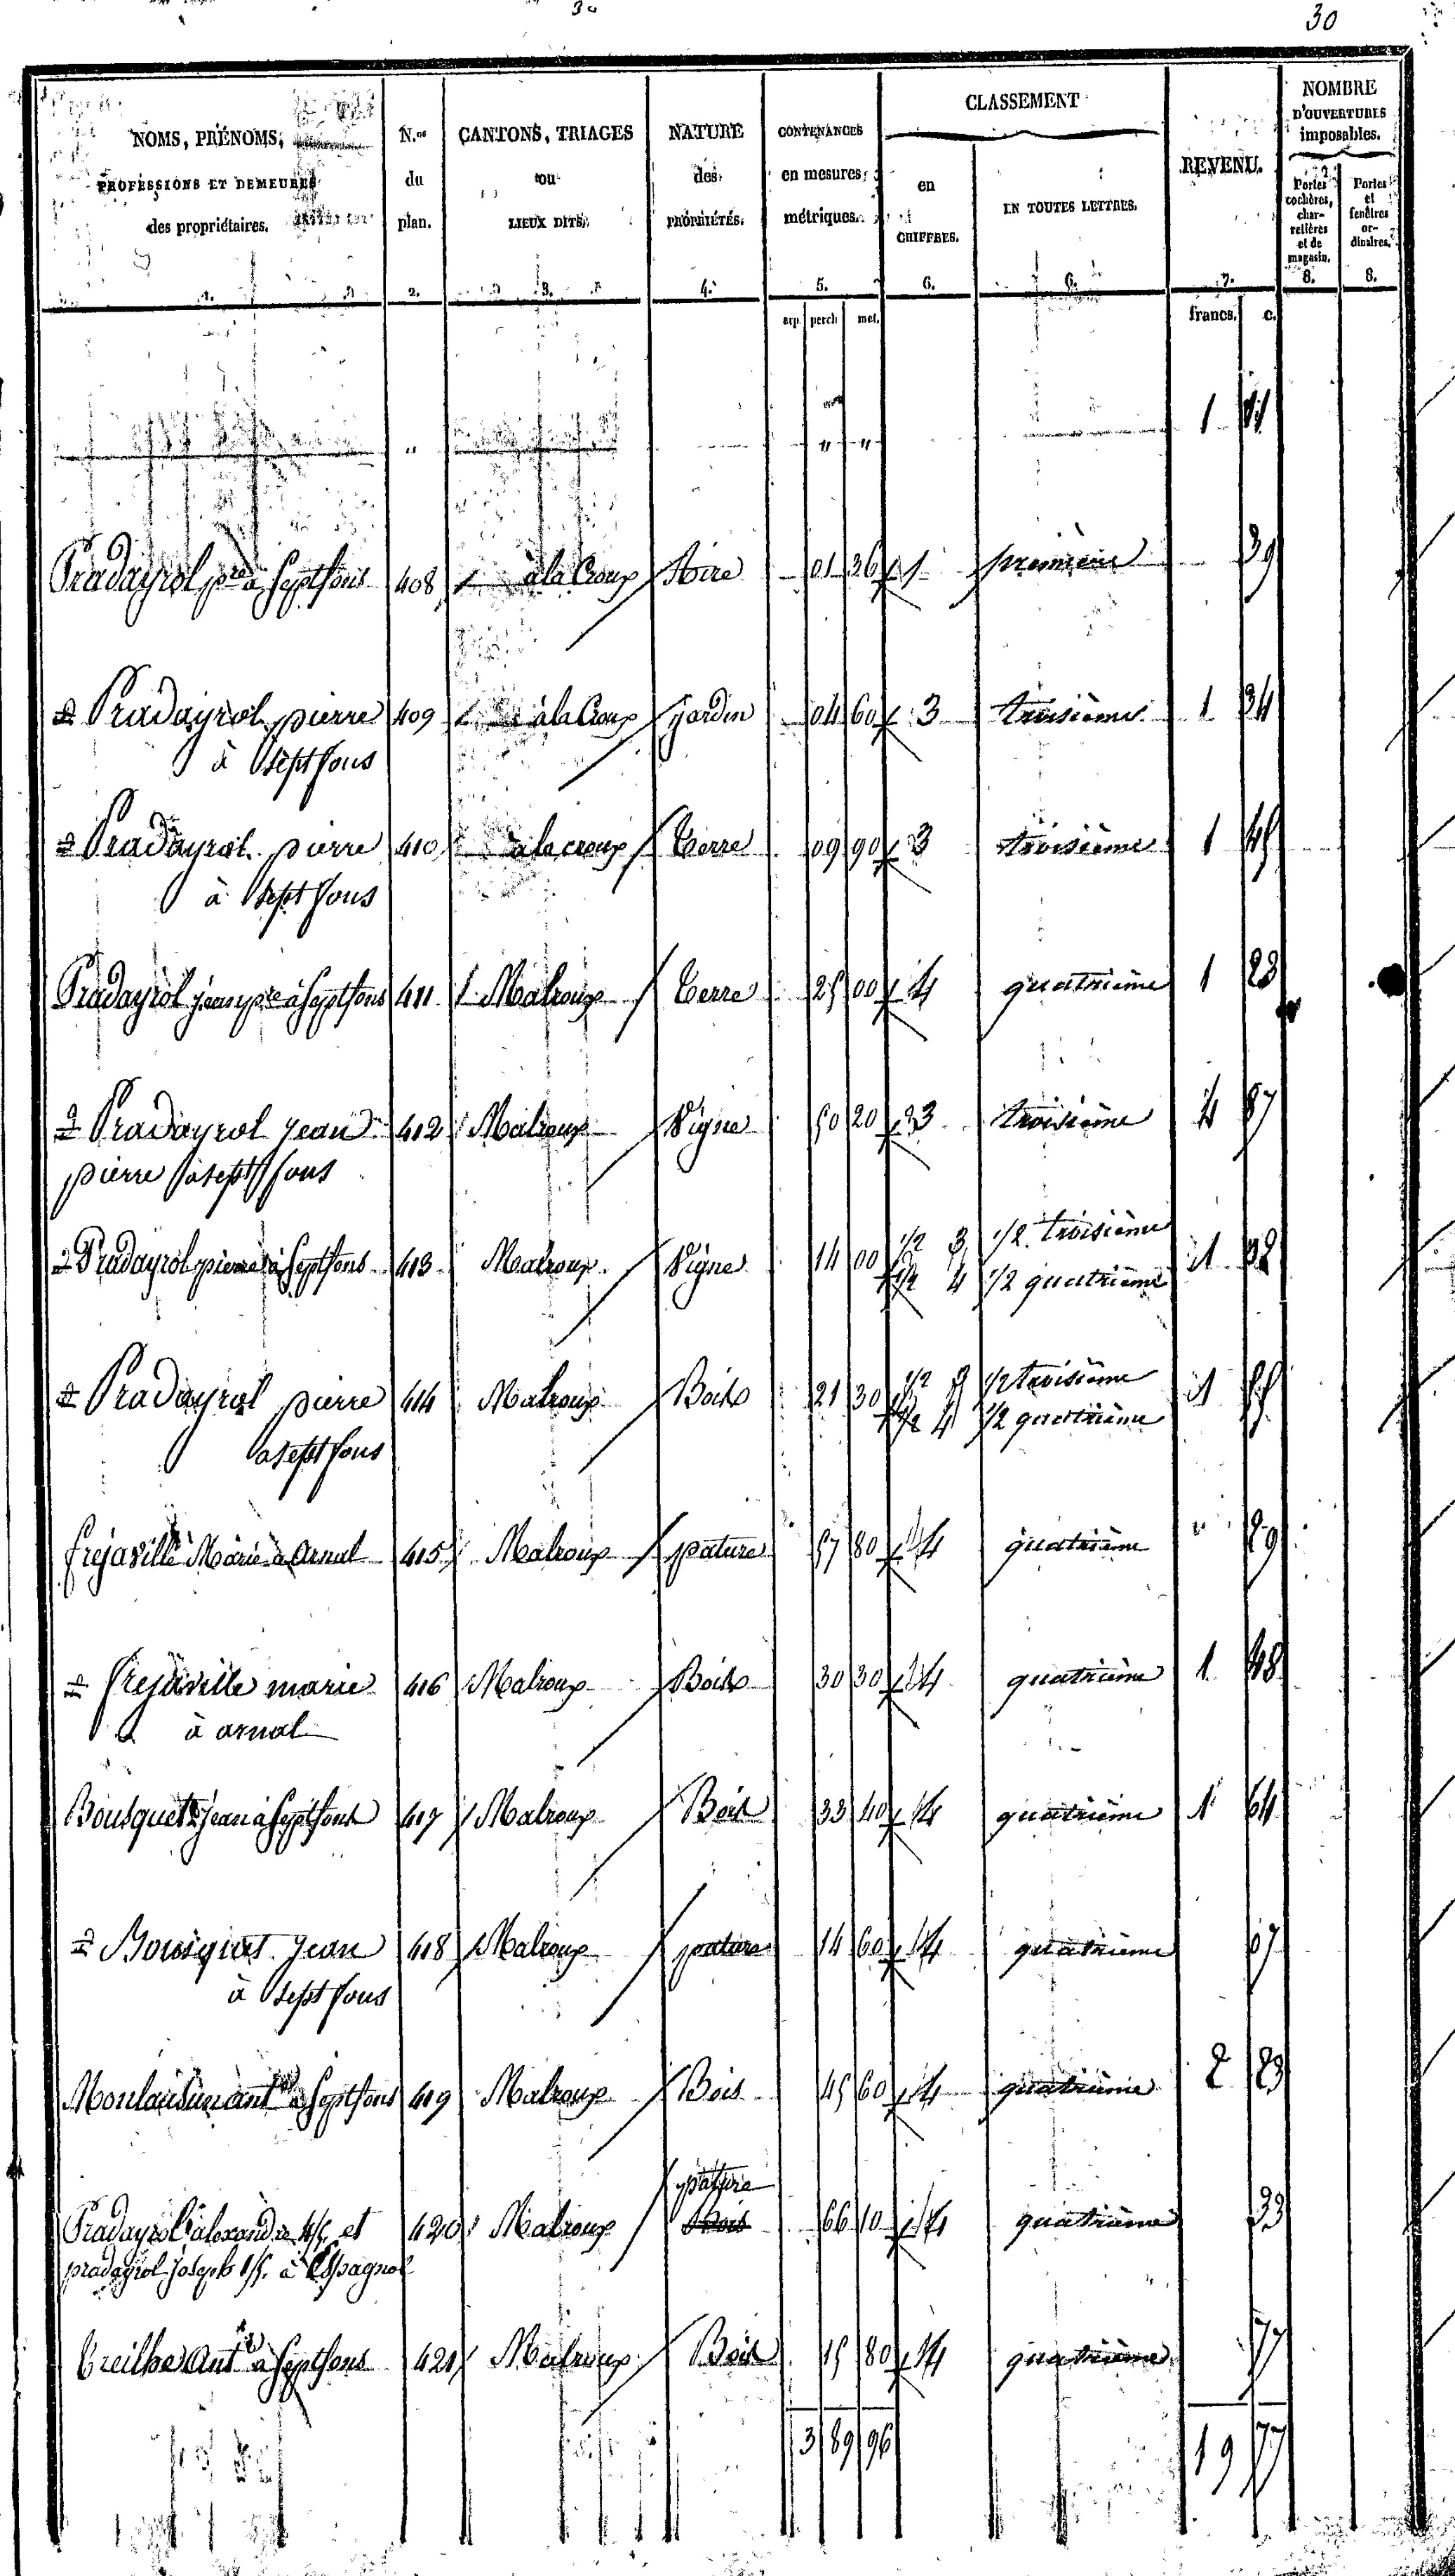 30
NOMS, PRÉNOMS, PROFESSIONS ET DEMEURES des propriétaires.
N.os du plan.
CANTONS, TRIAGES ou LIEUX DITS.
NATURE des PROPRIÉTÉS.
CONTENANCES en mesures métriques.
CLASSEMENT
en CHIFFRES.
EN TOUTES LETTRES.
REVENU.
NOMBRE D'OUVERTURES imposables.
Portes cochères, charretières et de magasin.
Portes et fenêtres ordinaires.
1. 2. 3. 4. 5. 6. 6. 7. 8. 8.
arp. perch. met. francs. c.
Pradayrol pre à Septfons 408 à la Croux Aire 01 36 1 première 39
d Pradayrol pierre 409 à la Croux jardin 04 60 3 troisième 1 34
à Septfons
d Pradayrol pierre 410 à la croux Terre 09 90 3 troisième 1 45
à Septfons
Pradayrol jean pre à Septfons 411 Malroux Terre 25 00 4 quatrième 1 23
d Pradayrol jean 412 Malroux Vigne 50 20 3 troisième 4 87
pierre à septfons
d Pradayrol pierre à Septfons 413 Malroux Vigne 14 00 1/2 3 1/2 troisième 1
1/2 4 1/2 quatrième
d Pradayrol pierre 414 Malroux Bois 21 30 1/2 3 1/2 troisième 1
1/2 4 1/2 quatrième
à septfons
frejaville Marie à Arnal 415 Malroux pature 57 80 4 quatrième " 29
d frejaville marie 416 Malroux Bois 30 30 4 quatrième 1 48
à arnal
Bousquet jean à Septfons 417 Malroux Bois 33 40 4 quatrième 1 64
d Bousquet jean 418 Malroux pature 14 60 4 quatrième 07
à septfons
ant à Septfons 419 Malroux Bois 45 60 4 quatrième 2 23
pature
Pradayrol alexandre et 420 Malroux Bois 66 10 4 quatrième 33
pradayrol joseph à Espagnol
Treilhe Ant à Septfons 421 Malroux Bois 15 80 4 quatrième 77
3 89 96 19 77